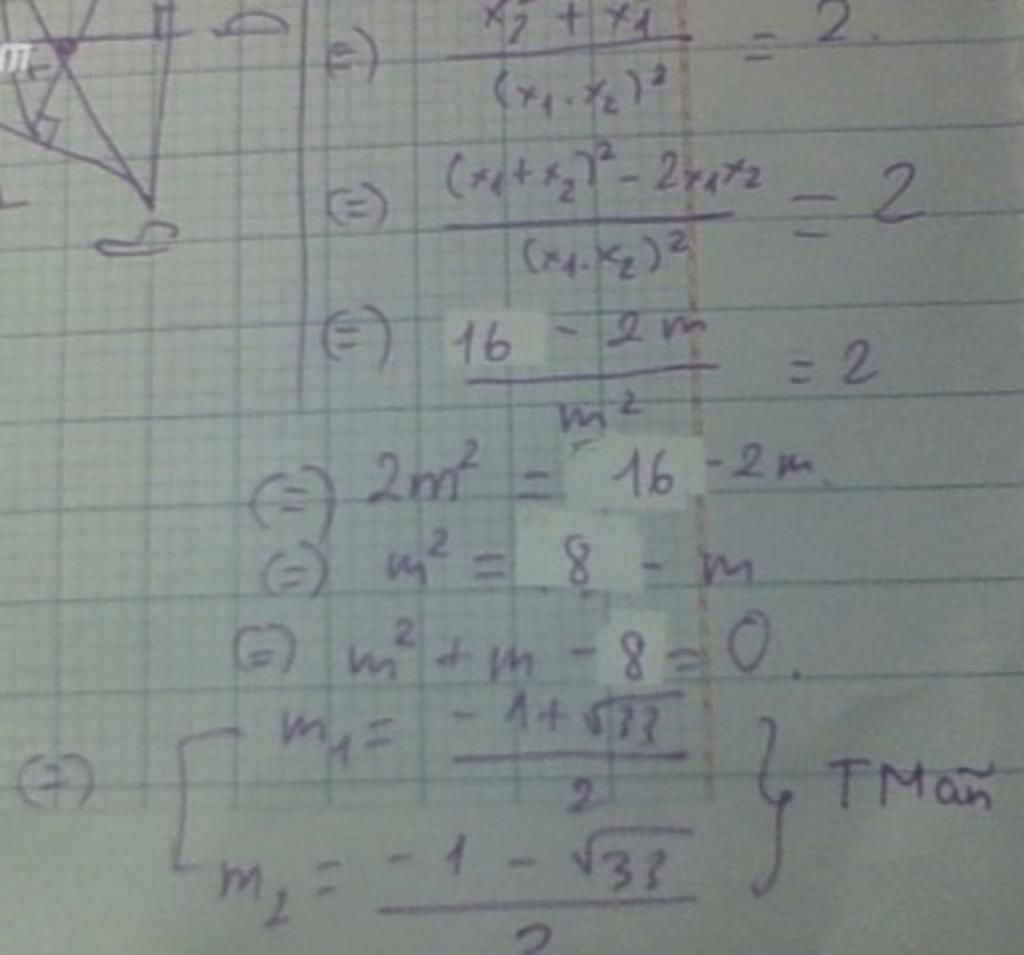 m
(=) x₂² + x₁² / (x₁.x₂)² = 2.
(=) (x₁+x₂)² - 2x₁x₂ / (x₁.x₂)² = 2
(=) 16 - 2m / m² = 2
(=) 2m² = 16 - 2m.
(=) m² = 8 - m
(=) m² + m - 8 = 0.
(=) m₁ = -1+√33 / 2
m₂ = -1 - √33 / 2
} TMđk